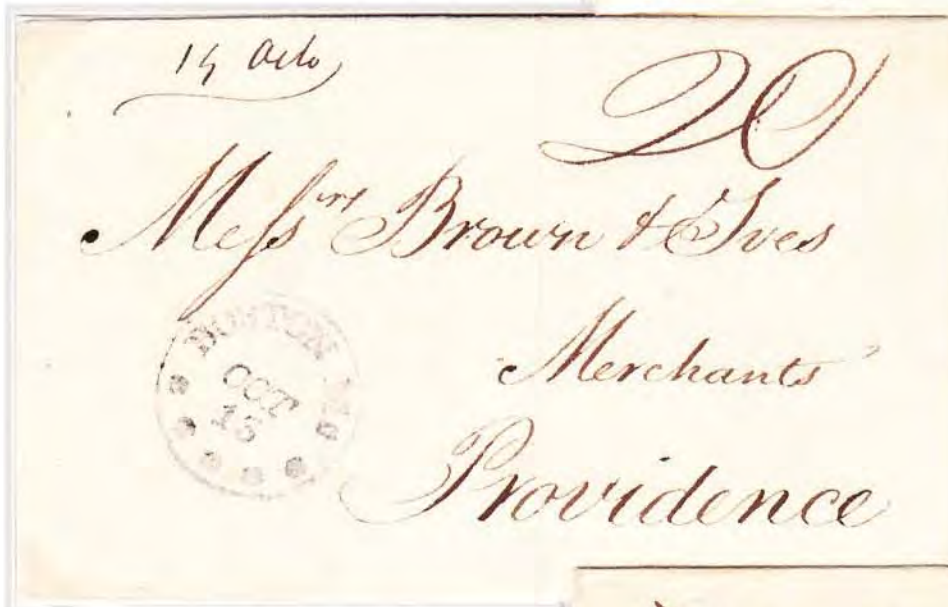 Octo
20
Messrs Brown & Ives
Merchants
Providence
BOSTON Ms
OCT
15